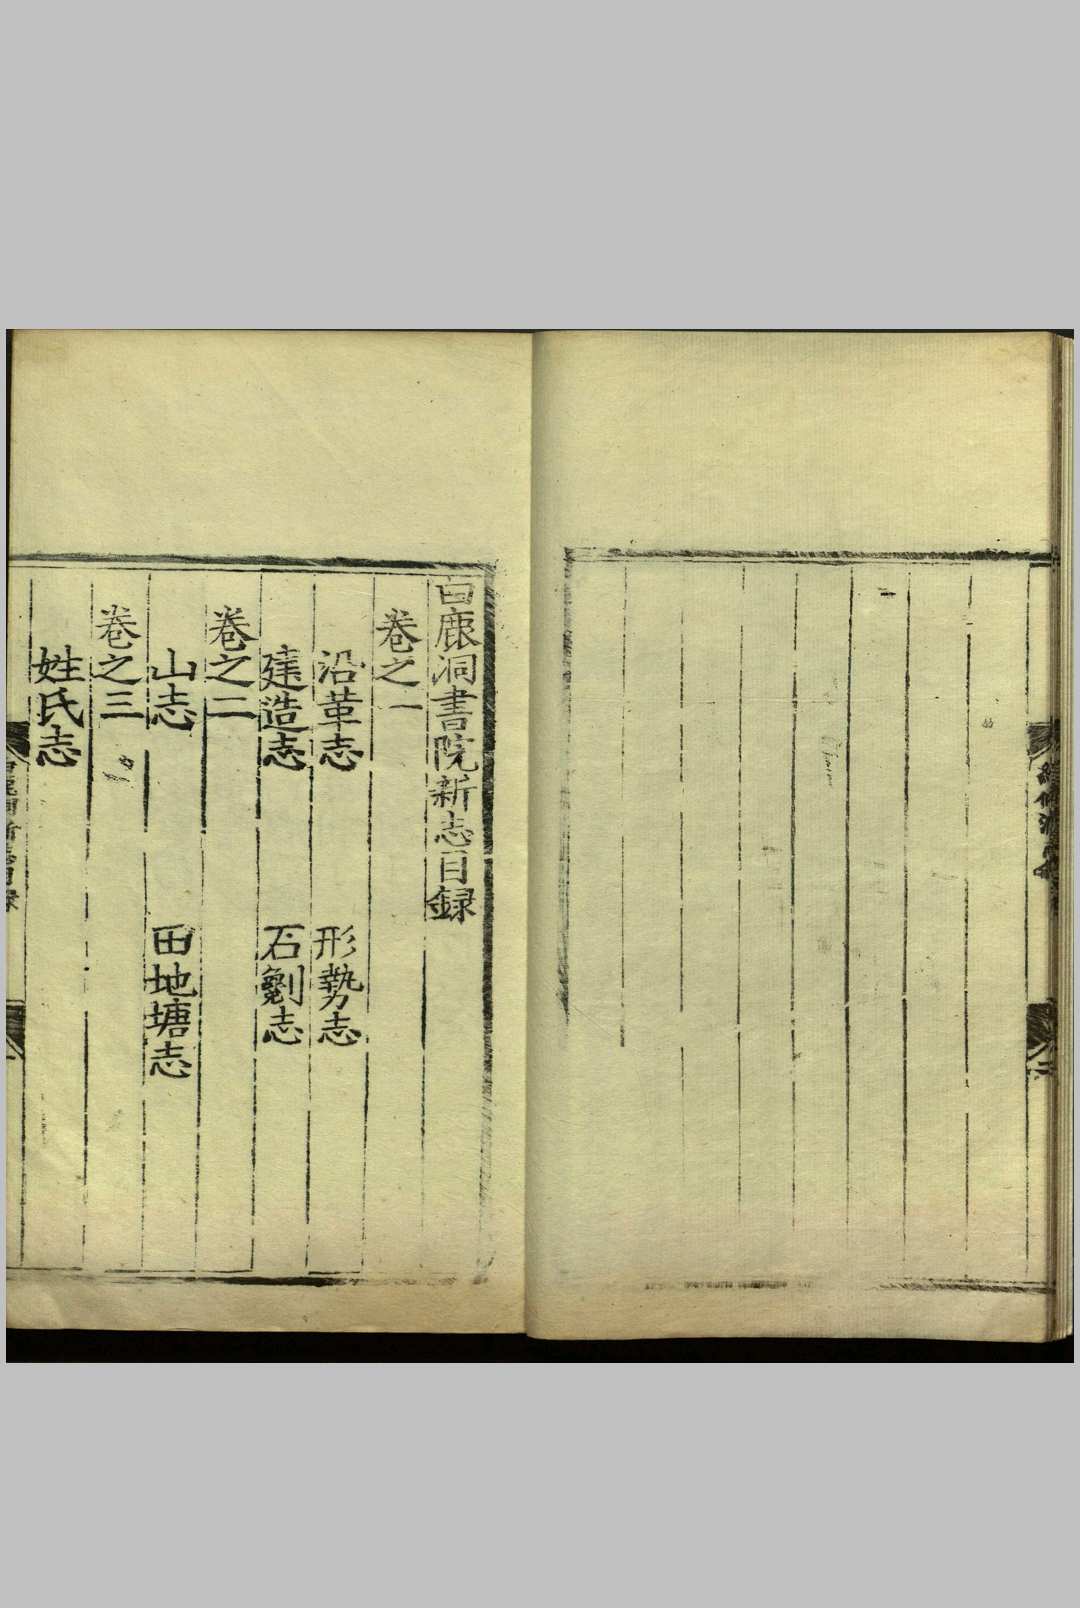 白鹿洞書院新志目録
卷之一
沿革志 形勢志
建造志 石劖志
卷之二
山志 田地塘志
卷之三
姓氏志